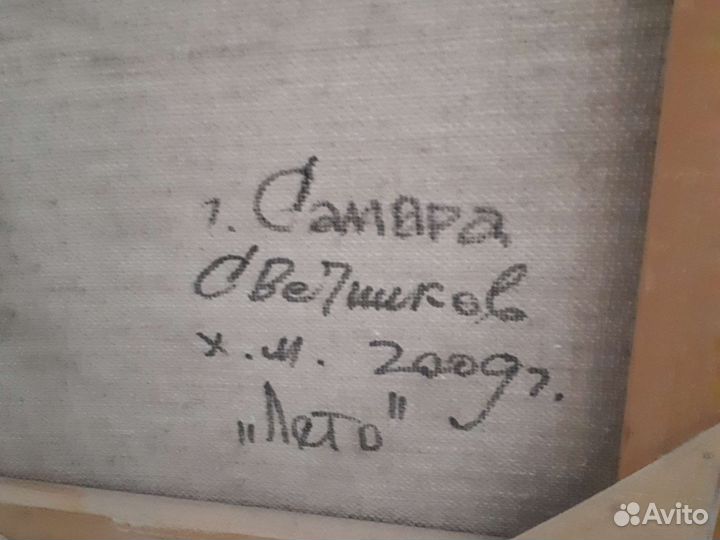 г. Самара
Свечников
х.м. 2009г.
„Лето"
Avito